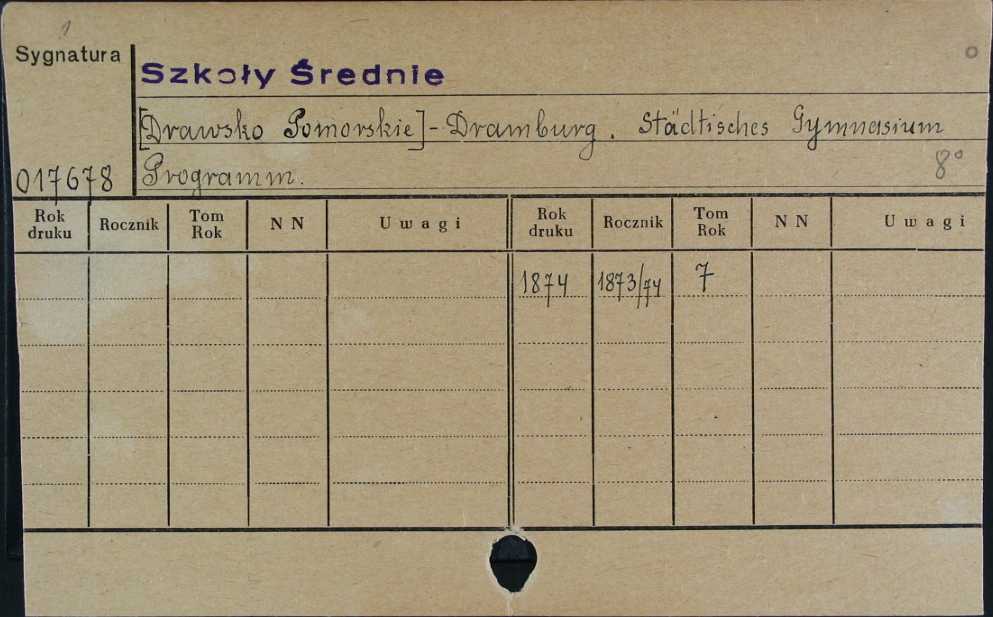 1
Sygnatura
Szkoły Średnie
[Drawsko Pomorskie] - Dramburg. Städtisches Gymnasium
8°
017678
Programm.
Rok druku Rocznik Tom Rok NN Uwagi Rok druku Rocznik Tom Rok NN Uwagi
1874 1873/74 7